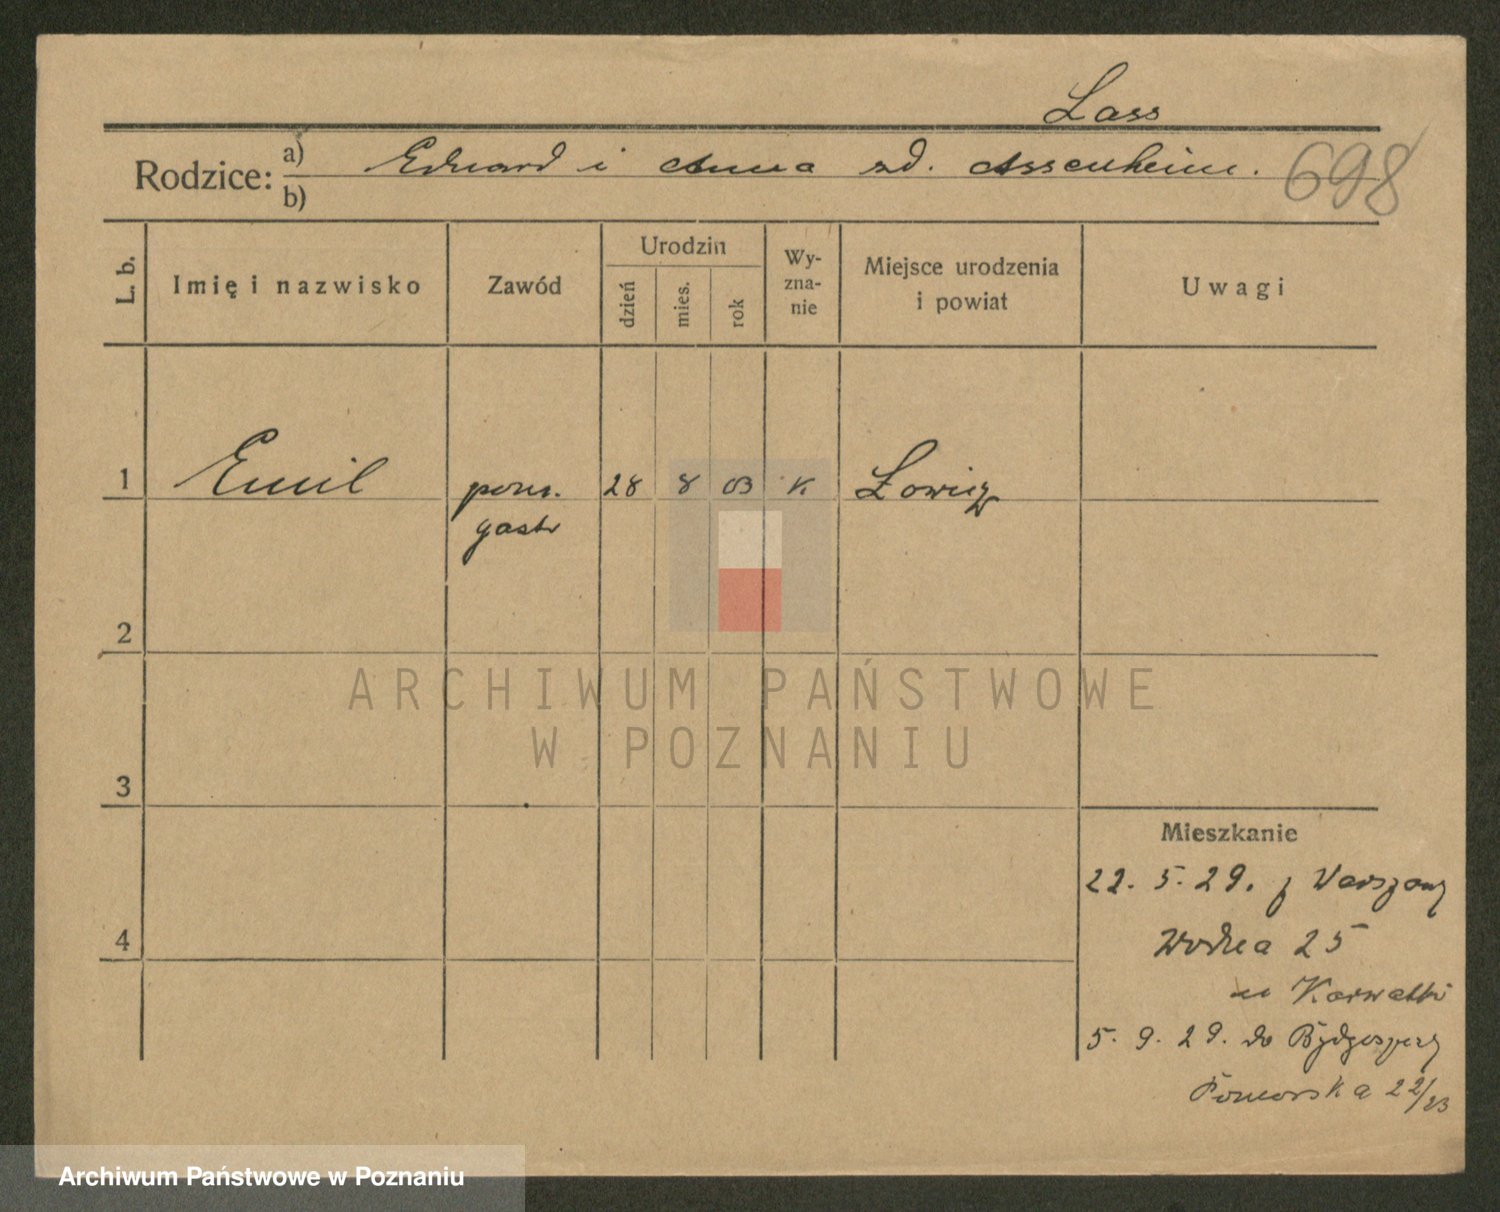 Lass
Rodzice: a) Eduard i Anna zd. Assenheim.
b)
698
L. b. Imię i nazwisko Zawód Urodzin dzień mies. rok Wy-zna-nie Miejsce urodzenia i powiat Uwagi
1 Emil pom. 28 8 03 K Łowicz
gastr
2
ARCHIWUM PAŃSTWOWE
W POZNANIU
3
Mieszkanie
22. 5. 29. z Warszawy
4 Wodna 25
u
5. 9. 29. do Bydgoszczy
Pomorska 22/23
Archiwum Państwowe w Poznaniu